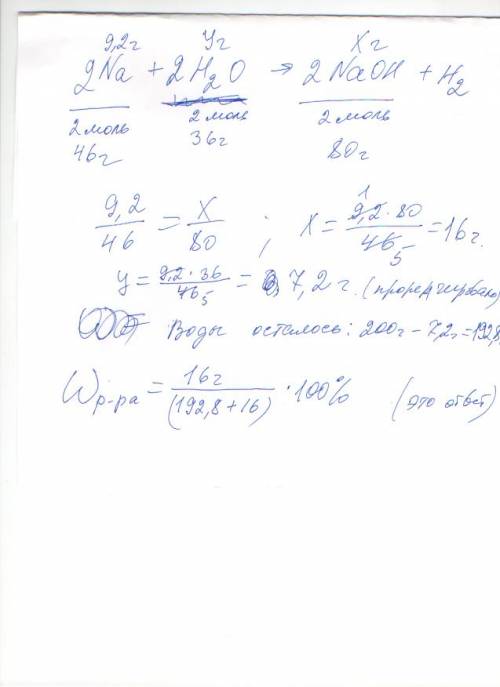 9,2г yг Xг
2Na + 2H2O → 2NaOH + H2
2 моль 2 моль 2 моль
46г 36г 80г
9,2/46 = X/80 ; X = 9,2·80/46 = 16г.
1 5
y = 9,2·36/46 = 7,2 г. (прореагировало)
5
Воды осталось: 200г - 7,2г = 192,8
Wр-ра = 16г/(192,8+16) · 100% (это ответ)